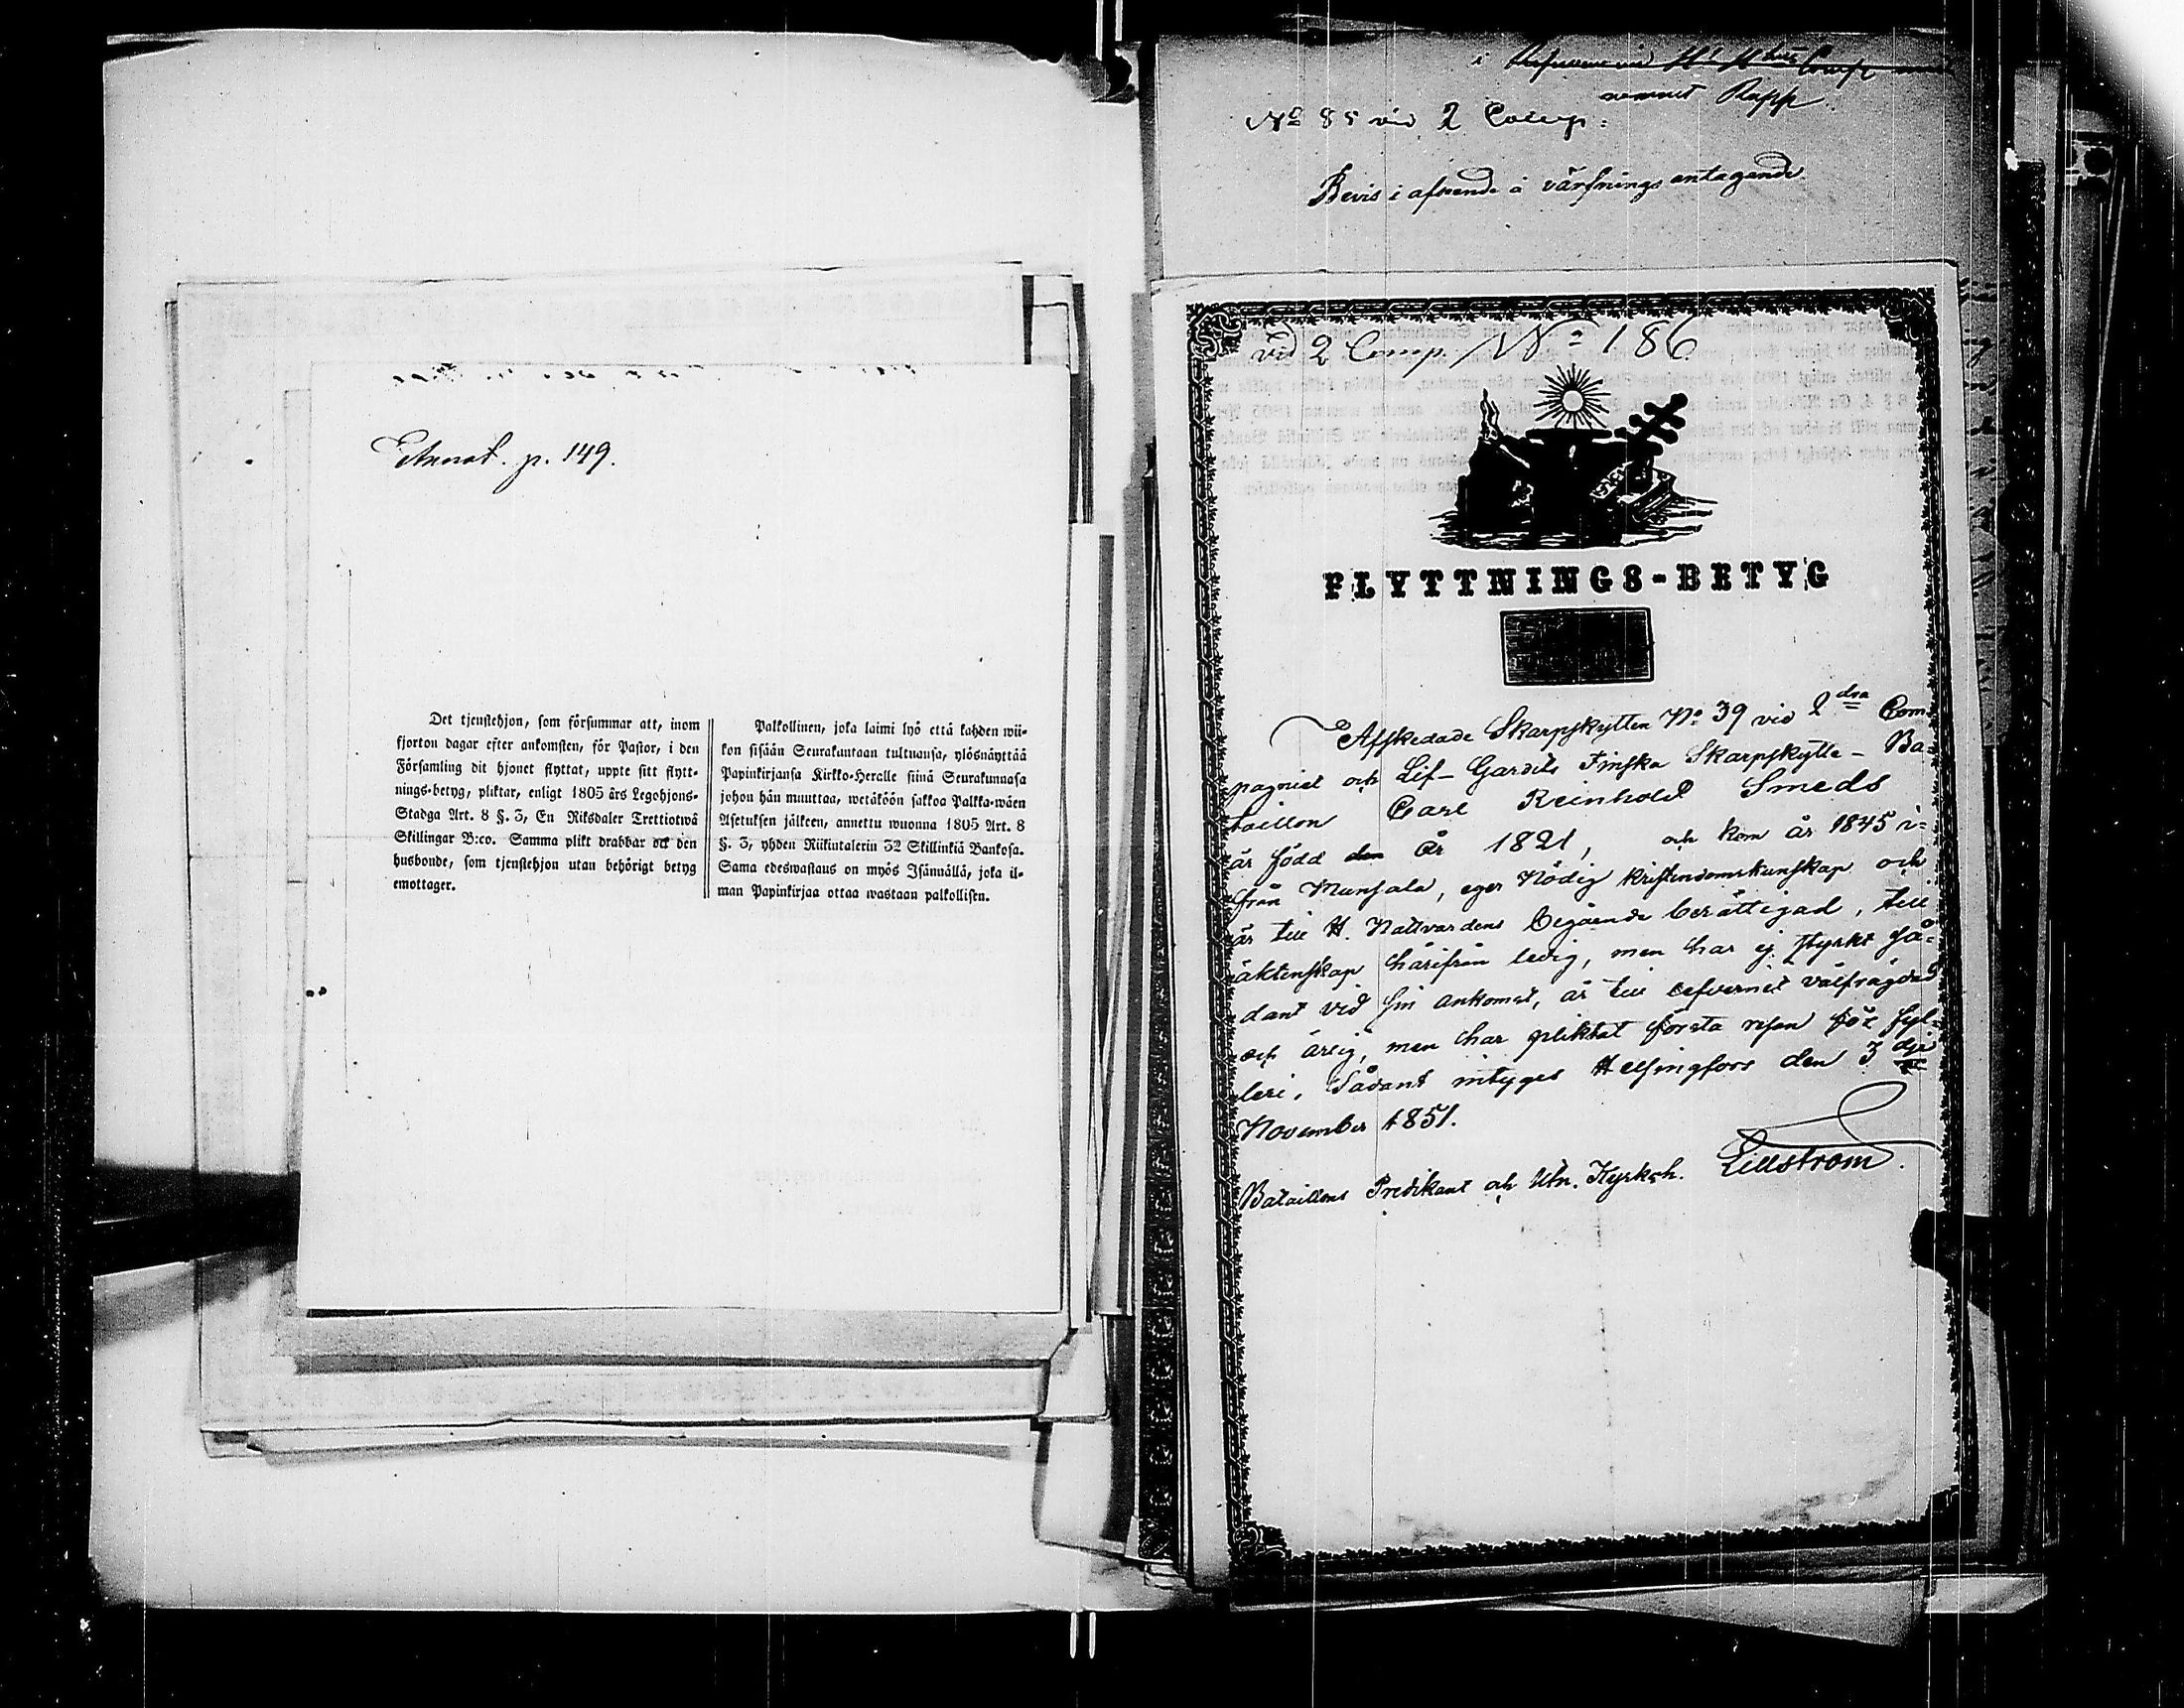 Annot. p. 149.
Det tjenstehjon, som försummar att, inom
fjorton dagar efter ankomsten, för Pastor, i den
Församling dit hjonet flyttat, uppte sitt flytt-
nings-betyg, pliktar, enligt 1805 års Legohjons-
Stadga Art. 8 §. 3, En Riksdaler Trettiotwå
Skillingar B:co. Samma plikt drabbar ock den
husbonde, som tjenstehjon utan behörigt betyg
emottager.
Palkollinen, joka laimi lyö että kahden wii-
kon sisään Seurakuntaan tultuansa, ylösnäyttää
Papinkirjansa Kirkko-Heralle siinä Seurakunnasa
johon hän muuttaa, wetäköön sakkoa Palkka-wäen
Asetuksen jälkeen, annettu wuonna 1805 Art. 8
§. 3, yhden Riikintalerin 32 Skillinkiä Bankosa.
Sama edeswastaus on myös Isännällä, joka il-
man Papinkirjaa ottaa wastaan palkollisen.
i Comp med
namnet Rapp
No 85 vid 2 Comp:
Bevis i afseende å värfnings antagande
vid 2 Comp. No 186
FLYTTNINGS-BETYG
Afskedade Skarpskytten No 39 vid 2dra Com-
pagniet och Lif-Gardets Finska Skarpskytte-Ba-
taillon Carl Reinhold Smeds
är född den År 1821, och kom år 1845 i-
från Munsala, eger Nödig kristendomskunskap och
är till H. Nattvardens begående berättigad, till
äktenskap härifrån ledig, men har ej styrkt så-
dant vid sin ankomst, är till lefvernet välfrägdad
och ärlig, men har pliktat första resan för fyl-
leri, Sådant intyges Helsingfors den 3dje
November 1851.
Bataillons Predikant och Utn. Kyrkoh. Lillström.